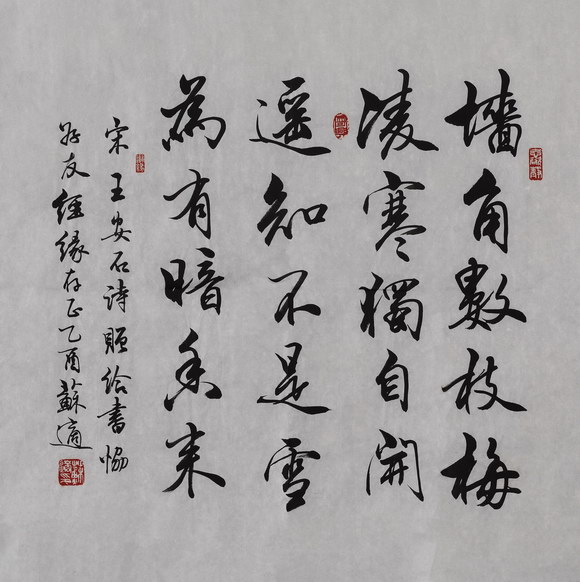 墙角數枝梅
凌寒獨自開
遥知不是雪
為有暗香来
宋王安石詩贈给書協
好友經緣存正乙酉蘇適